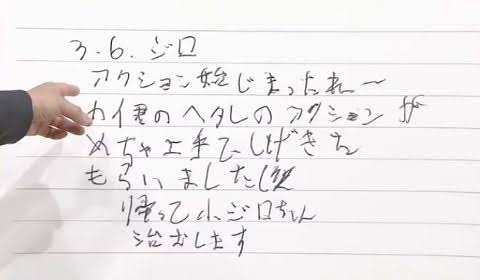 3.6.ジロ
アクション始じまったねー
力俺のヘタレのアクションが
めちゃ上手でしげきを
もらいました(笑
帰って小ジロちゃん
治おします